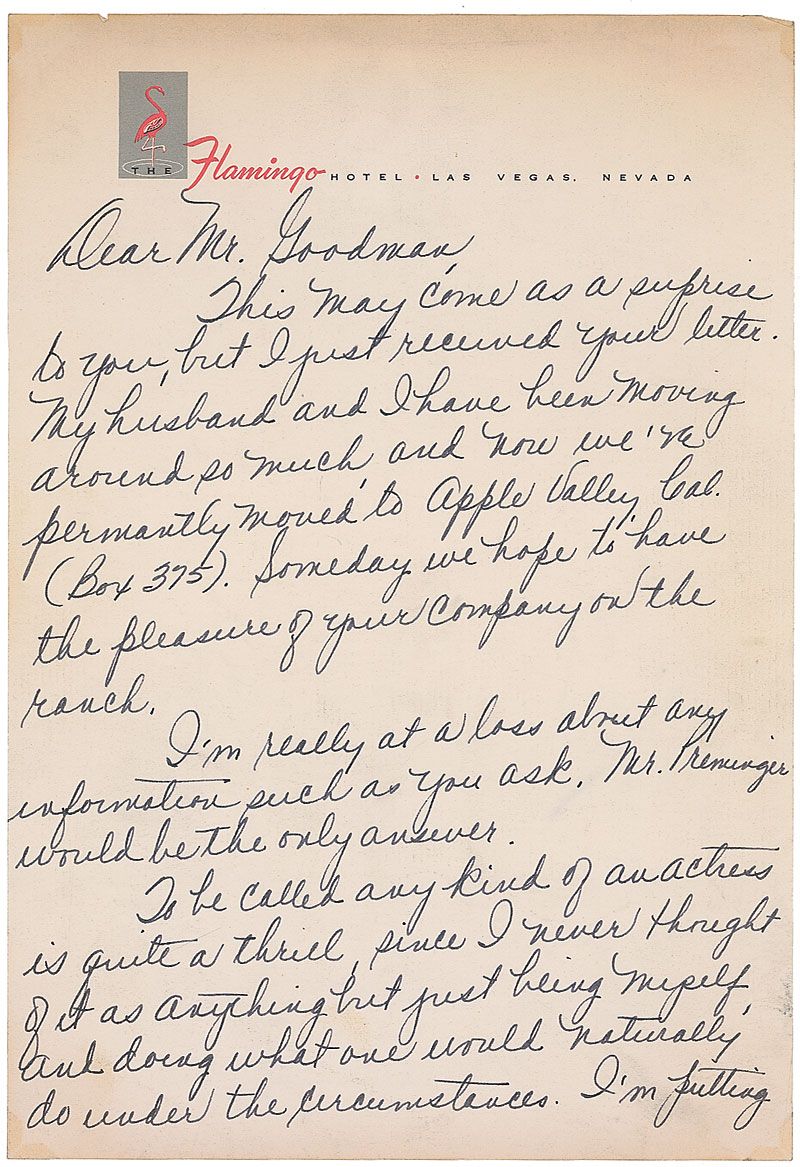 THE Flamingo HOTEL · LAS VEGAS, NEVADA
Dear Mr. Goodman,
This may come as a suprise
to you, but I just received your letter.
My husband and I have been moving
around so much, and now we've
permantly moved to Apple Valley, Cal.
(Box 375). Someday we hope to have
the pleasure of your company on the
ranch.
I'm really at a loss about any
information such as you ask. Mr. Preminger
would be the only answer.
To be called any kind of an actress
is quite a thrill, since I never thought
of it as anything but just being myself,
and doing what one would naturally
do under the circumstances. I'm putting